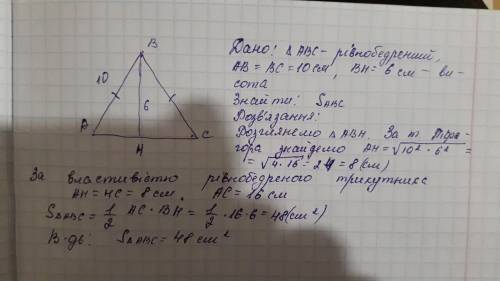 B
10
6
A
H
C
Дано: △ABC - рівнобедренний,
AB = BC = 10 см, BH = 6 см - ви-
сота
Знайти: SABC
Розв'язання:
Розглянемо △ABH. За т. Піфа-
гора знайдемо AH = √10² - 6² =
= √4·16 = 2·4 = 8 (см)
За властивістю рівнобедреного трикутника
AH = HC = 8 см. AC = 16 см
S△ABC = 1/2 AC · BH = 1/2 · 16 · 6 = 48 (см²)
В-дь: S△ABC = 48 см²